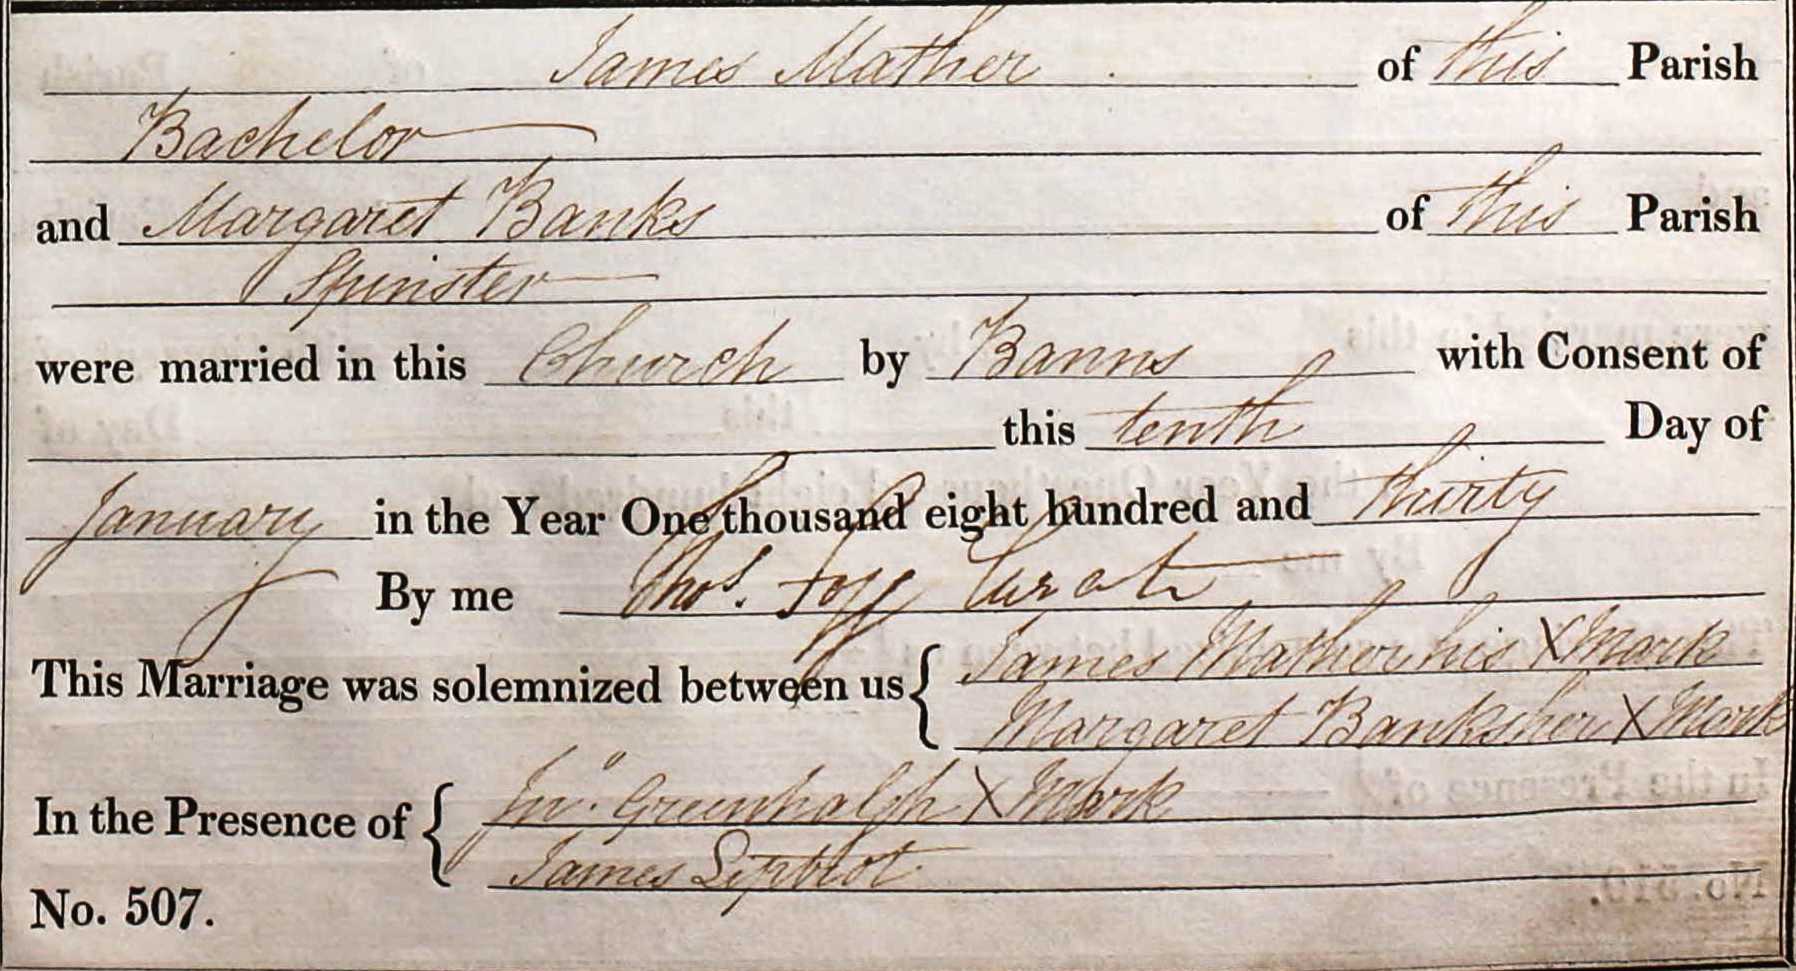 James Mather of this Parish
Bachelor
and Margaret Banks of this Parish
Spinster
were married in this Church by Banns with Consent of
this tenth Day of
January in the Year One thousand eight hundred and thirty
By me Thos. Curate
This Marriage was solemnized between us { James Mather his X Mark
Margaret Banks her X Mark
In the Presence of { Jno. Greenhalgh X Mark
James
No. 507.